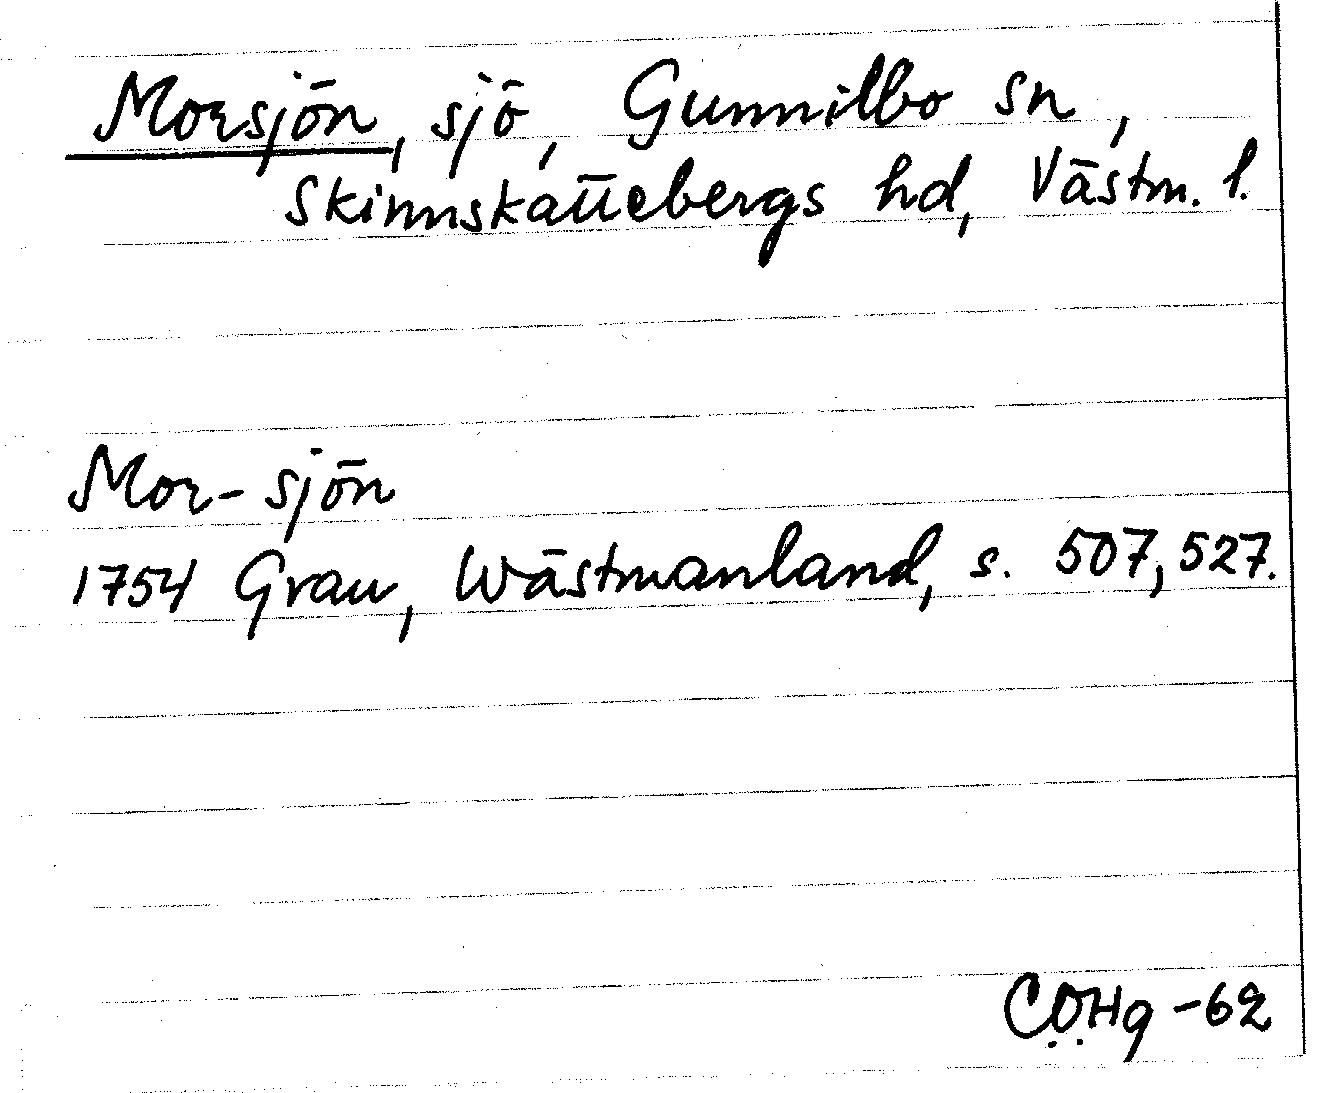 Morsjön, sjö, Gunnilbo sn,
Skinnskattebergs hd, Västm. l.
Mor-sjön
1754 Grau, Wästmanland, s. 507, 527.
CÖHg -62